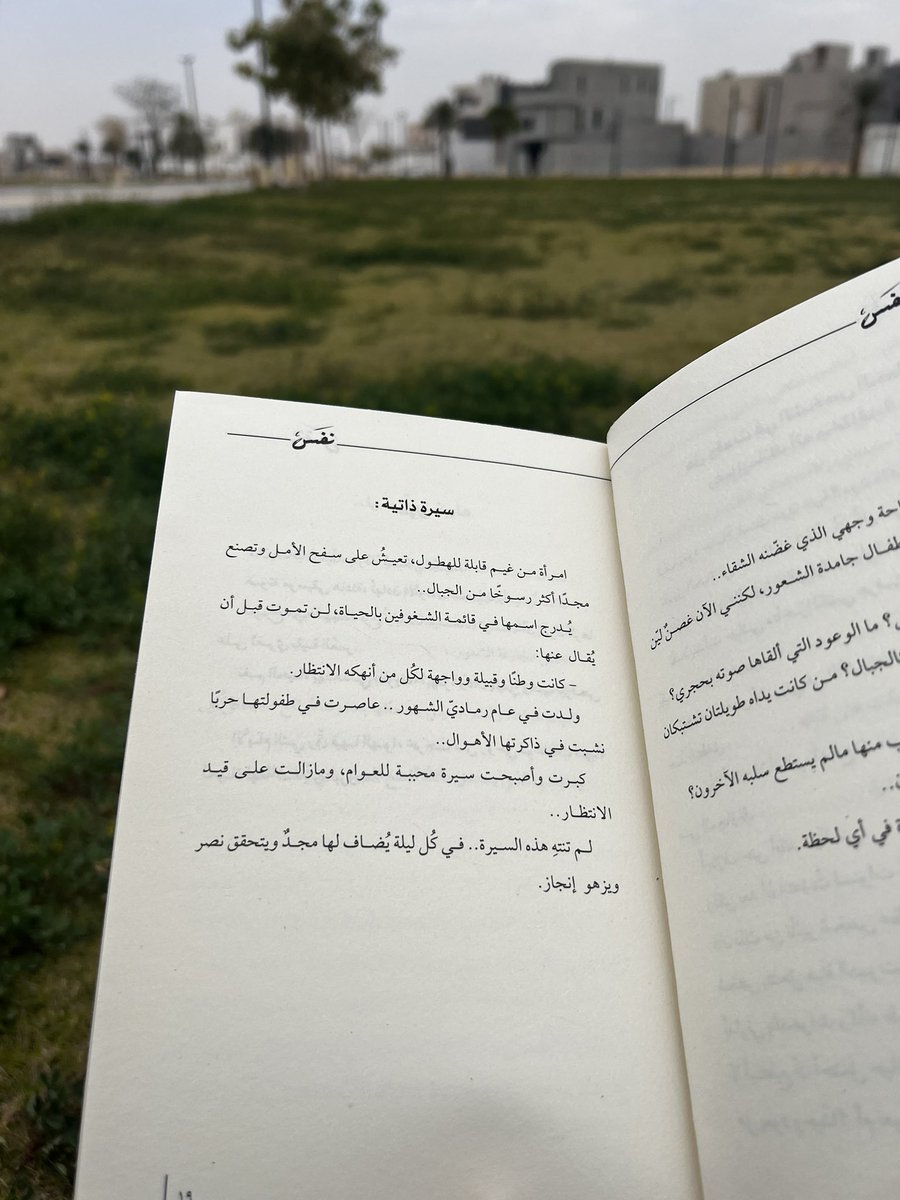 نفَس
احة وجهي الذي غضّنه الشقاء..
طفال جامدة الشعور، لكنني الآن غصنٌ ليّن
؟ ما الوعود التي ألقاها صوته بحجري؟
الجبال؟ من كانت يداه طويلتان تشتبكان
ب منها مالم يستطع سلبه الآخرون؟
ة في أي لحظة.
نفَس
سيرة ذاتية:
امرأة من غيم قابلة للهطول، تعيشُ على سفح الأمل وتصنع
مجدًا أكثر رسوخًا من الجبال..
يُدرج اسمها في قائمة الشغوفين بالحياة، لن تموت قبل أن
يُقال عنها:
- كانت وطنًا وقبيلة وواجهة لكُل من أنهكه الانتظار.
ولدت في عام رماديّ الشهور.. عاصرت في طفولتها حربًا
نشبت في ذاكرتها الأهوال..
كبرت وأصبحت سيرة محببة للعوام، ومازالت على قيد
الانتظار..
لم تنتهِ هذه السيرة.. في كُل ليلة يُضاف لها مجدٌ ويتحقق نصر
ويزهو إنجاز.
١٩